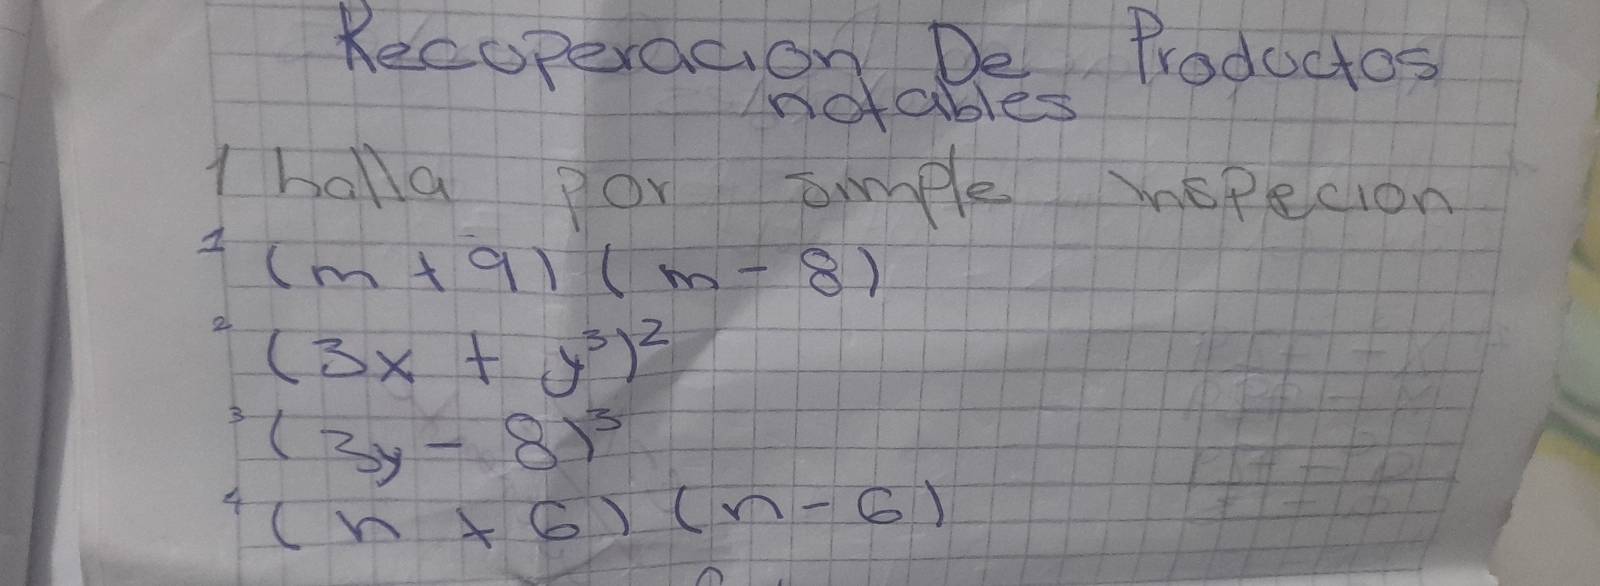 Recuperacion De Productos
notables
1 halla por simple inspecion
1 (m + 9) (m - 8)
2 (3x + y³)²
3 (3y - 8)³
4 (n + 6) (n - 6)